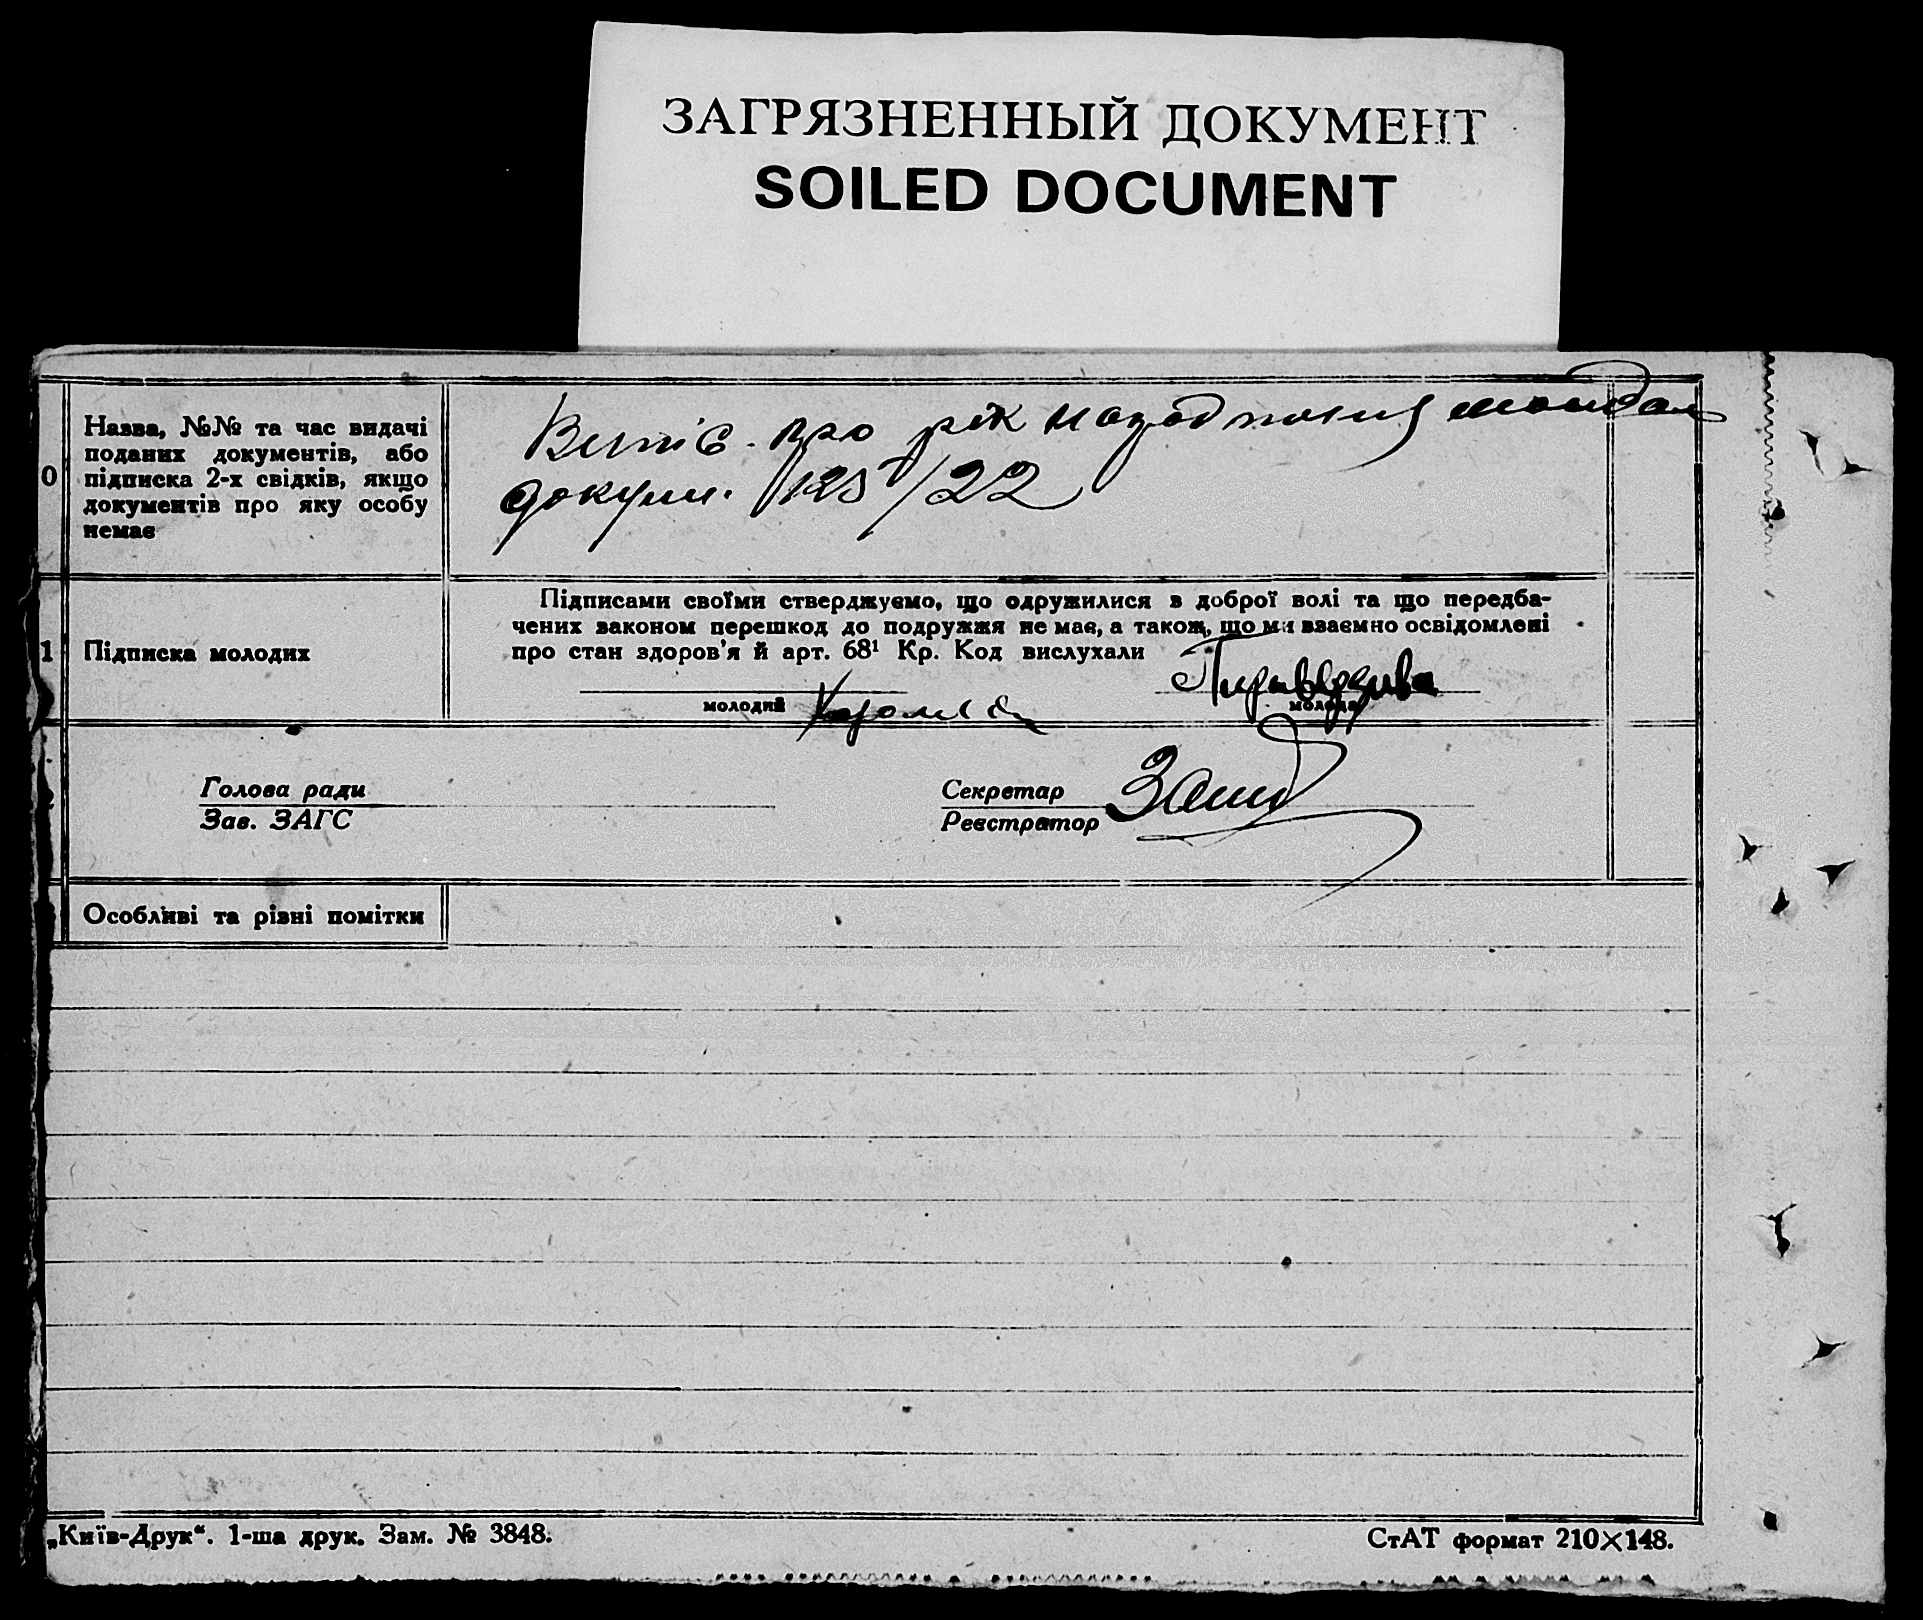 ЗАГРЯЗНЕННЫЙ ДОКУМЕНТ
SOILED DOCUMENT
0
Назва, №№ та час видачі
поданих документів, або
підписка 2-х свідків, якщо
документів про яку особу
немає
про рік народження
докум. 125/22
1
Підписка молодих
Підписами своїми стверджуємо, що одружилися в доброї волі та що передба-
чених законом перешкод до подружжя не має, а також, що ми взаємно освідомлені
про стан здоров'я й арт. 68¹ Кр. Код вислухали
молодий
молода
Голова ради
Зав. ЗАГС
Секретар
Реєстратор
Особливі та різні помітки
„Київ-Друк“. 1-ша друк. Зам. № 3848.
СтАТ формат 210×148.